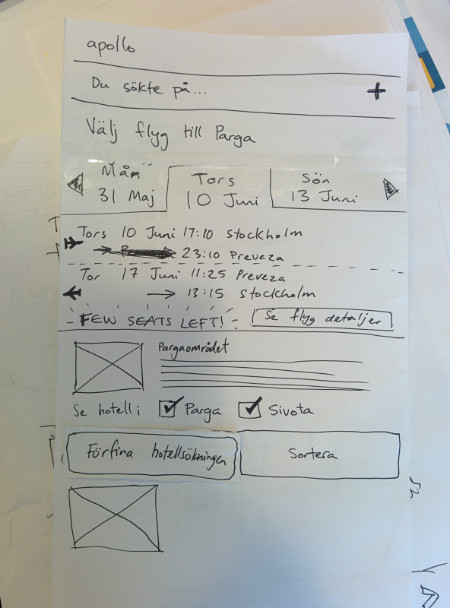 apollo
Du sökte på... +
Välj flyg till Parga
Mån Tors Sön
31 Maj 10 Juni 13 Juni
Tors 10 Juni 17:10 Stockholm
23:10 Preveza
Tor 17 Juni 11:25 Preveza
13:15 Stockholm
FEW SEATS LEFT! Se flyg detaljer
Pargaområdet
Se hotell i Parga Sivota
Förfina hotellsökningen Sortera